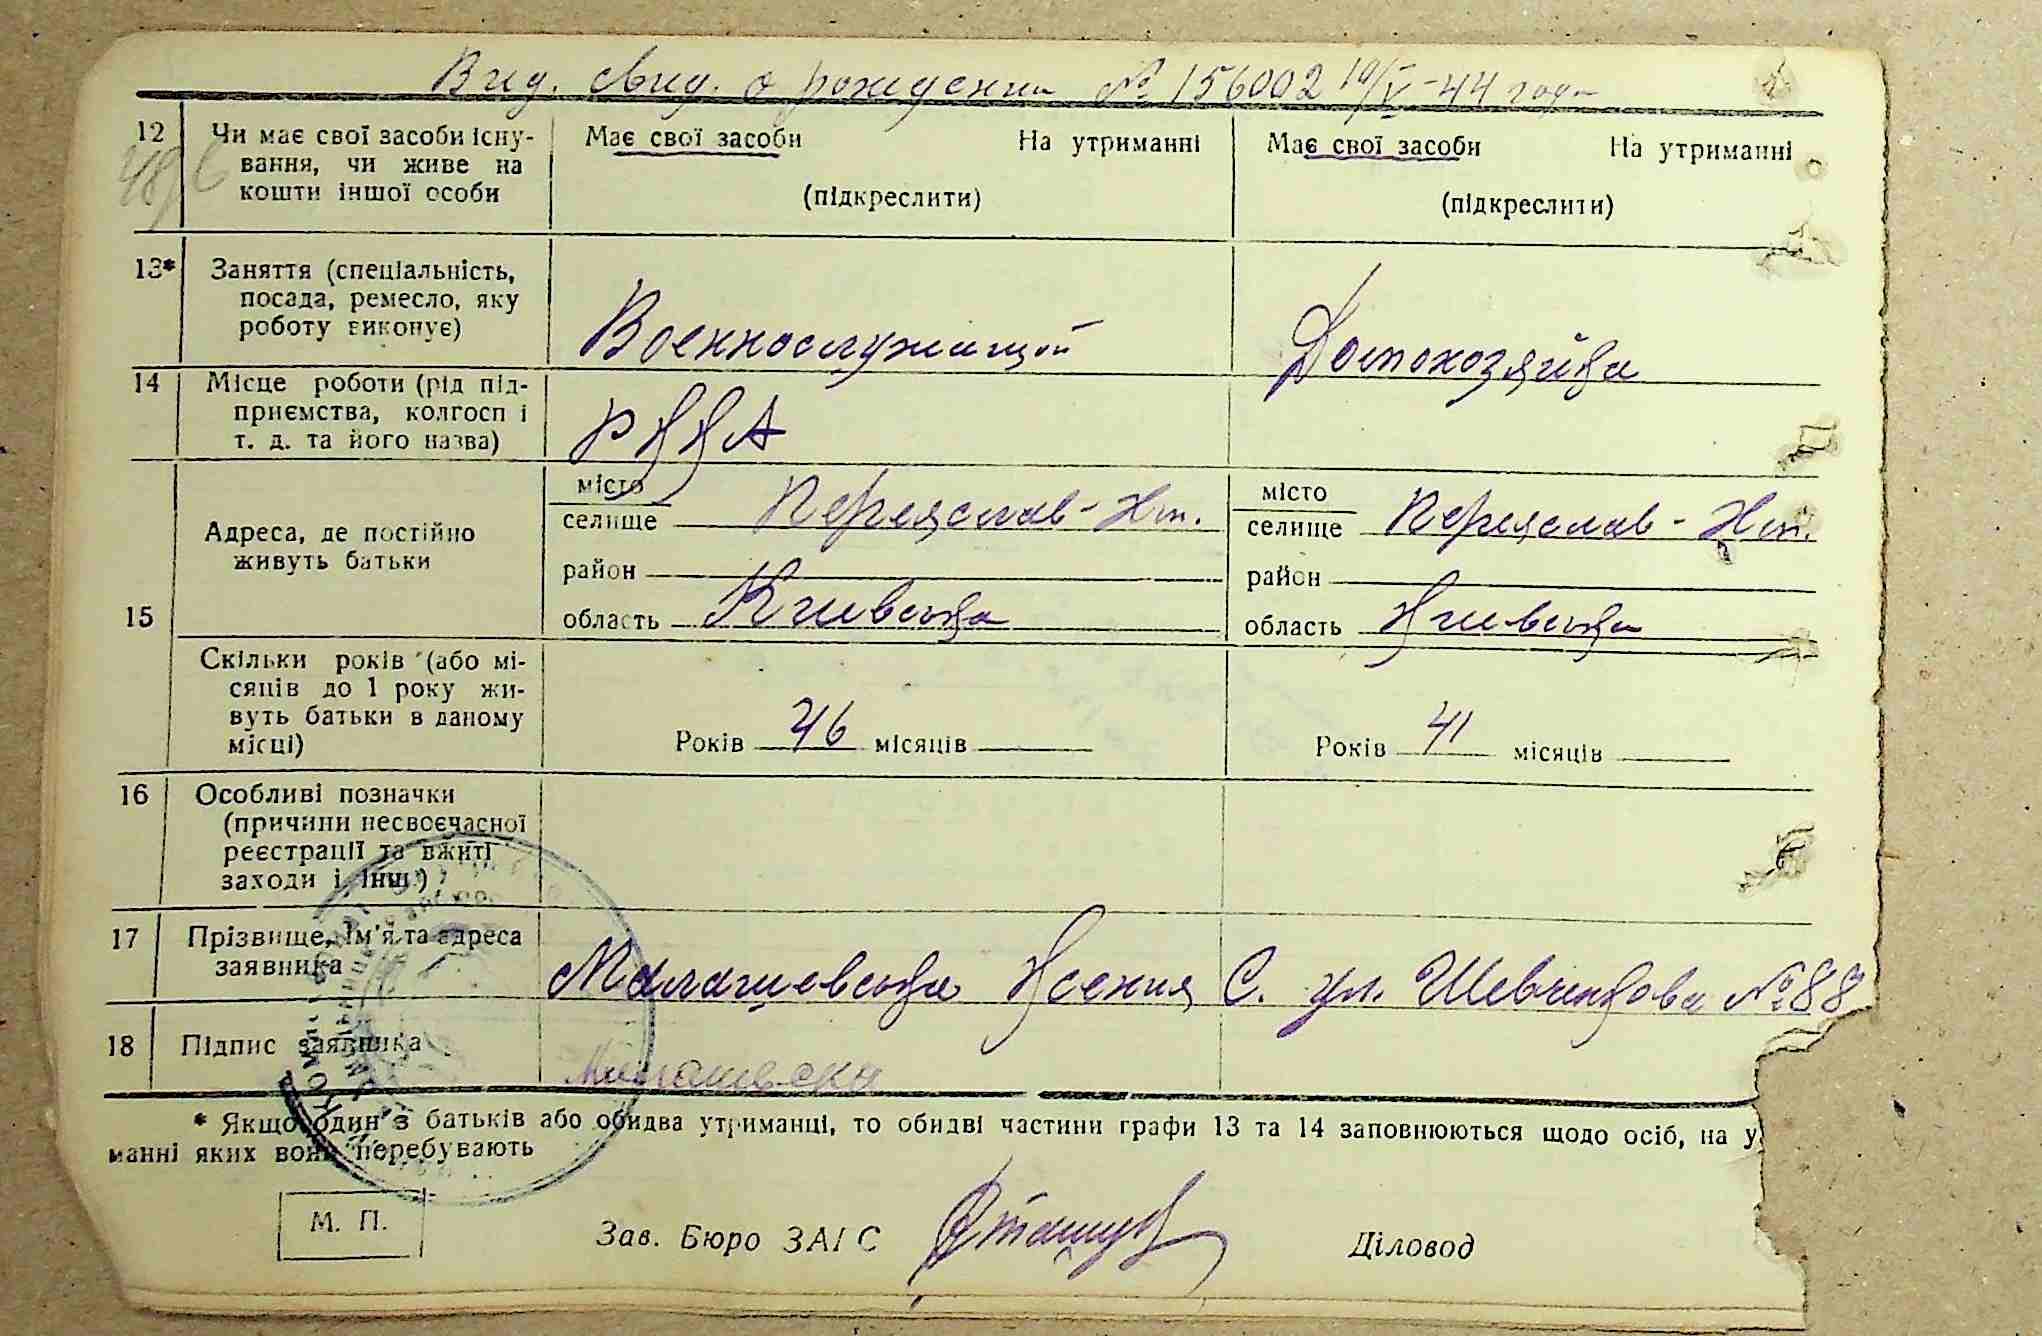 Вид. свид. о рождении № 156002 19/V-44 года
12 Чи має свої засоби існу-
вання, чи живе на
кошти іншої особи
Має свої засоби На утриманні
(підкреслити)
Має свої засоби На утриманні
(підкреслити)
13* Заняття (спеціальність,
посада, ремесло, яку
роботу виконує)
Военнослужащий
Домохозяйка
14 Місце роботи (рід під-
приємства, колгосп і
т. д. та його назва)
РККА
15 Адреса, де постійно
живуть батьки
місто
селище Переяслав-Хм.
район
область Київська
місто
селище Переяслав-Хм.
район
область Київська
Скільки років (або мі-
сяців до 1 року жи-
вуть батьки в даному
місці)
Років 46 місяців
Років 41 місяців
16 Особливі позначки
(причини несвоєчасної
реєстрації та вжиті
заходи і інш.)
17 Прізвище, ім'я та адреса
заявника
Малашевська Ксения С. ул. Шевченкова № 88
18 Підпис заявника
* Якщо один з батьків або обидва утриманці, то обидві частини графи 13 та 14 заповнюються щодо осіб, на у
манні яких вони перебувають
М. П.
Зав. Бюро ЗАГС
Діловод